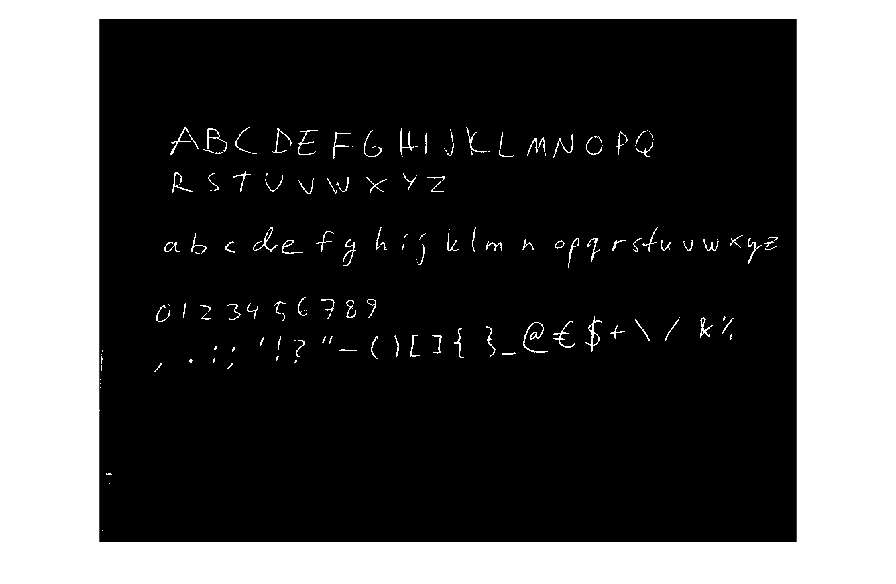 A B C D E F G H I J K L M N O P Q
R S T U V W X Y Z
a b c d e f g h i j k l m n o p q r s t u v w x y z
0 1 2 3 4 5 6 7 8 9
, . : ; ' ! ? " - ( ) [ ] { } _ @ € $ + \ / & %